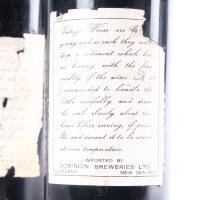 Vintage Wines are
young and as such they will
drop a sediment which has
no bearing with the fine
quality of the wine. It is
recommended to handle the
bottle carefully and draw
the cork slowly about two
hours before serving, if possi-
ble and decant it to be served
at room temperature.
IMPORTED BY
DOMINION BREWERIES LTD.
AUCKLAND NEW ZEALAND